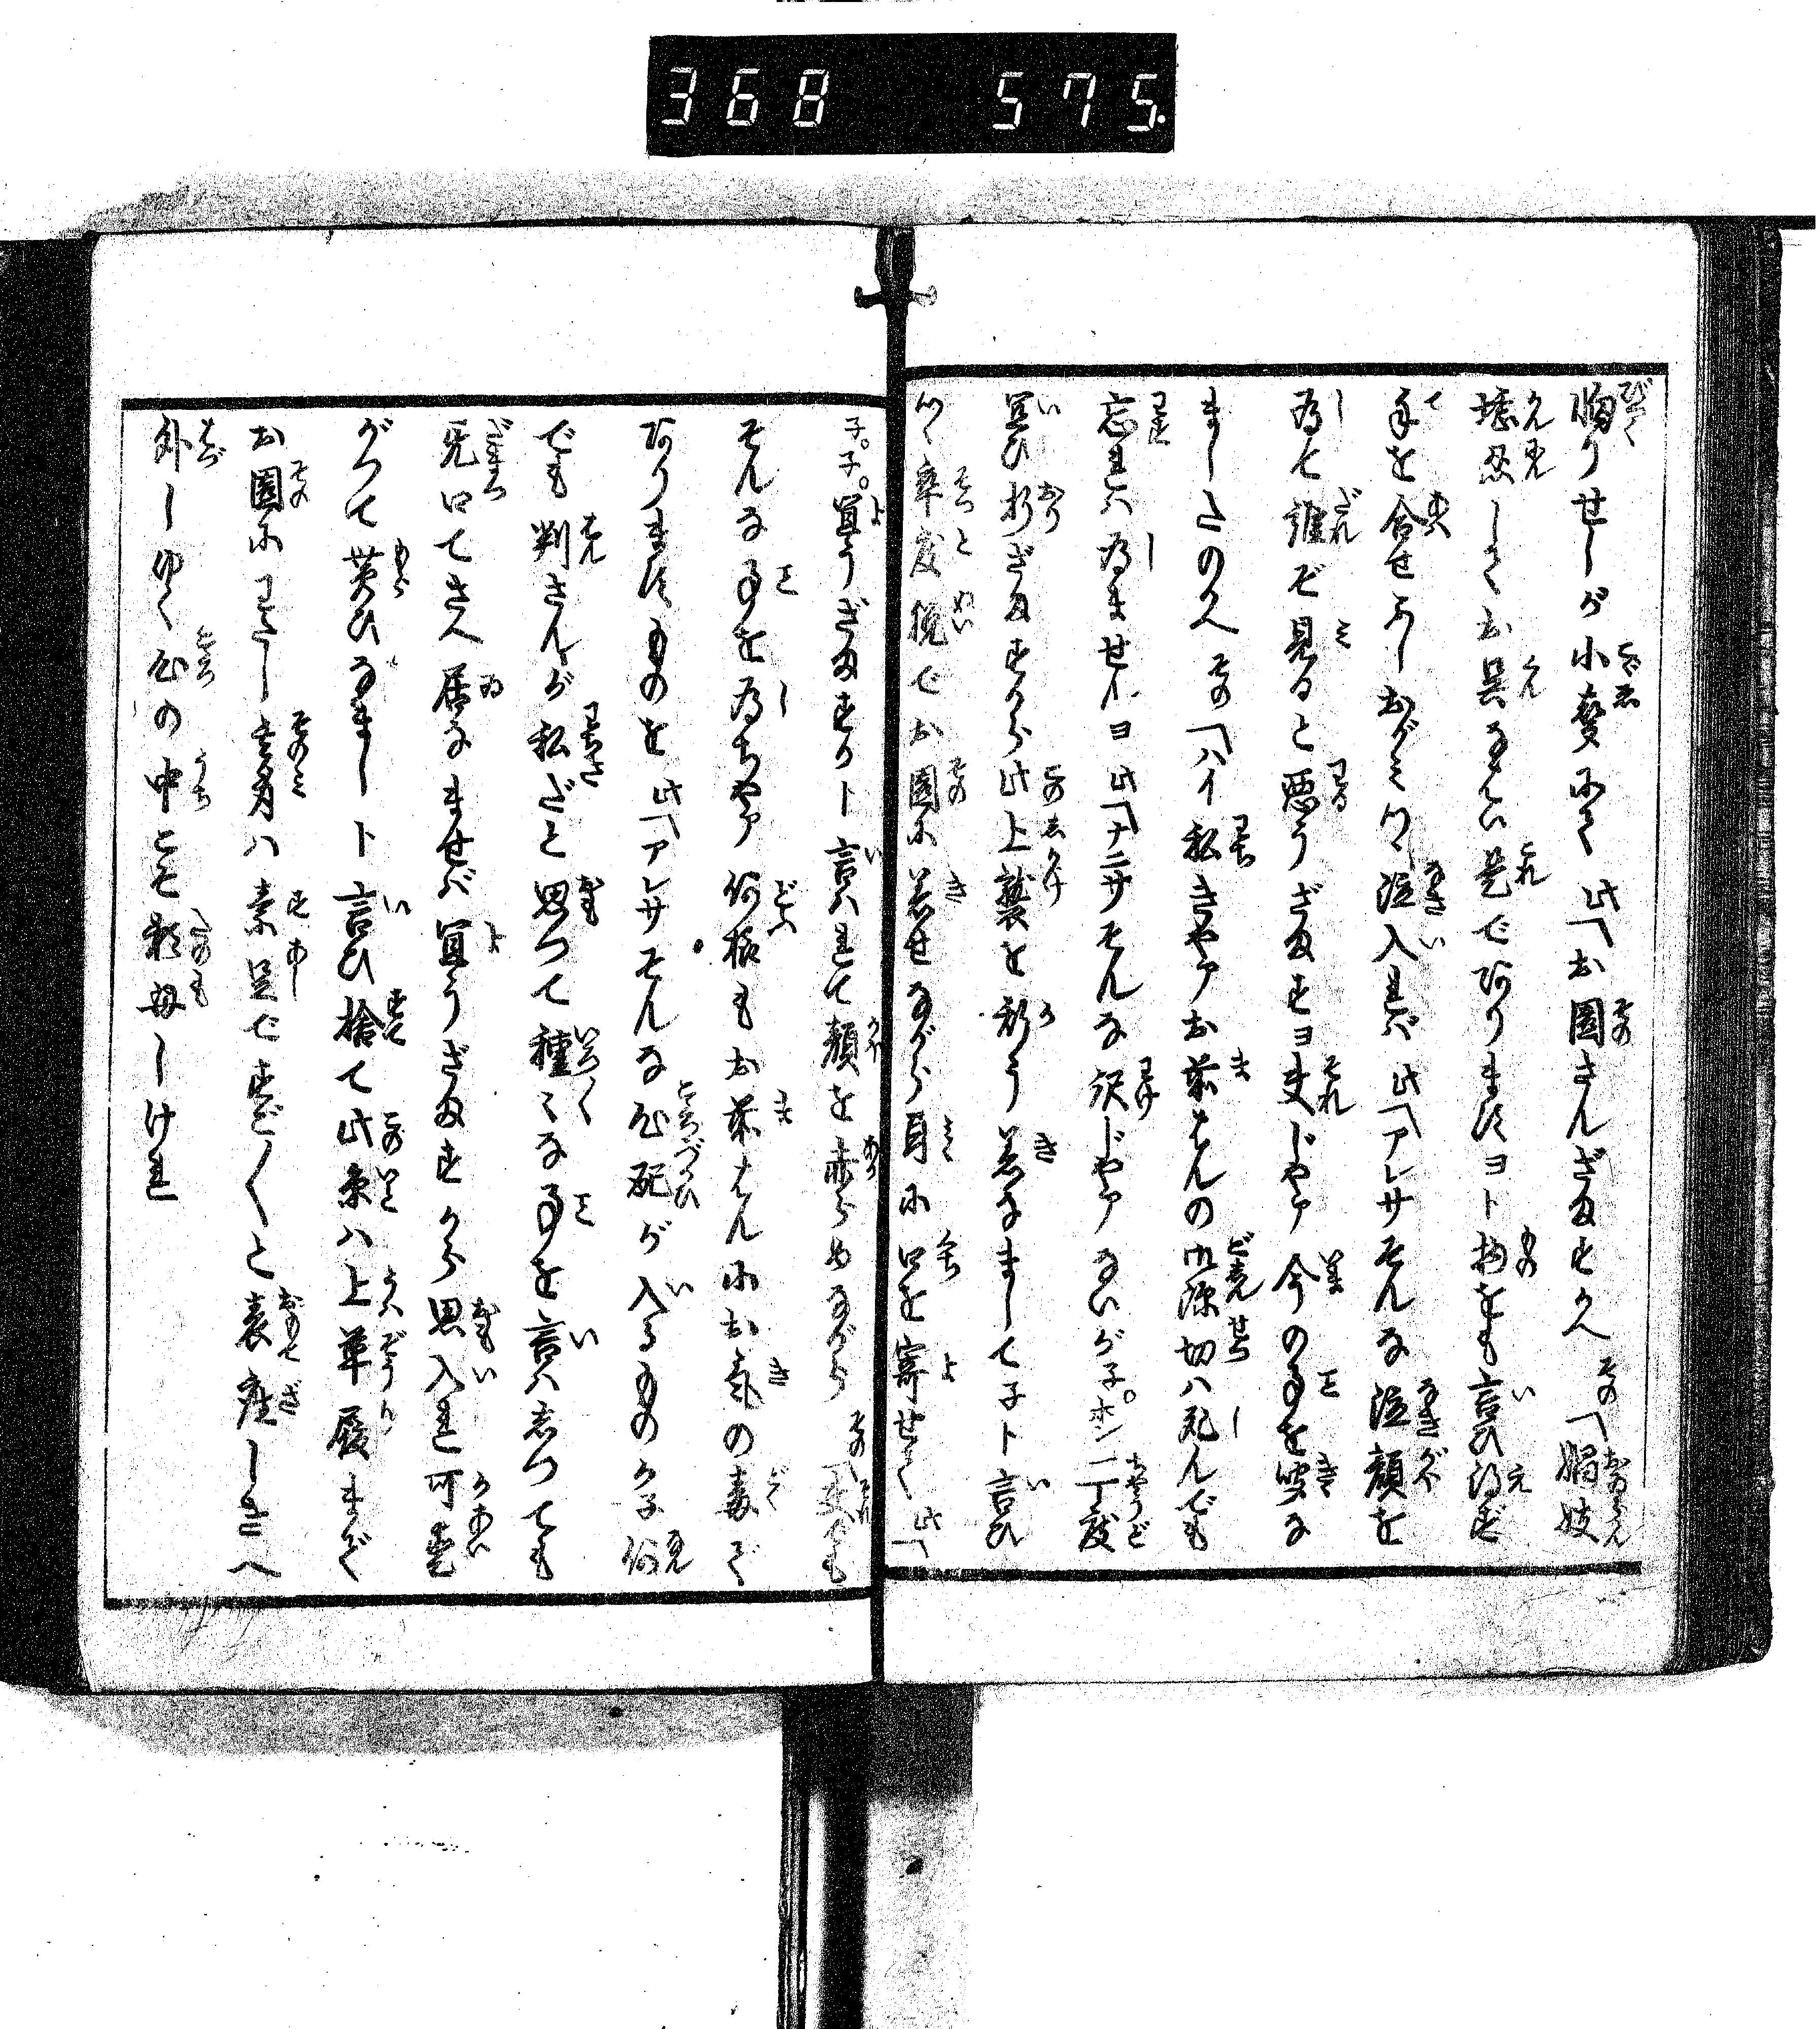 368 575
恟りせしが小聲にて 此「お園さんざますかへ その「娼妓
堪忍してお呉なさい是でありますヨト物をも言ひ得ず
手を合せふしおがみつゝ泣入れば 此「アレサそんな泣顔を
為て誰ぞ見ると悪うざますヨ夫じやア今の事を聞な
ましたのへ その「ハイ私きやアお前さんの御深切ハ死んでも
忘れハ為ませんヨ 此「ナニサそんな訳じやアないが子。ホンニ丁度
宜ひ折ざますから此上襲を形う着なまして子ト言ひ
つゝ率度挽でお園に着せながら耳に口を寄せて 此「
子。子。宜うざますかト言ハれて顔を赤らめながら その「夫でも
そんな事を為ちやア何様もお前さんにお氣の毒で
ありますものを 此「アレサそんな心配が入るものか子何
でも判さんが私だと思つて種〻な事を言ハしつても
默つてさへ居なませば宜うざますから思入れ可愛
がつて貰ひなましト言ひ捨て此糸ハ上草履まで
お園にわたし其身ハ素足ですご〳〵と表座しきへ
外しゆく心の中こそ頼母しけれ